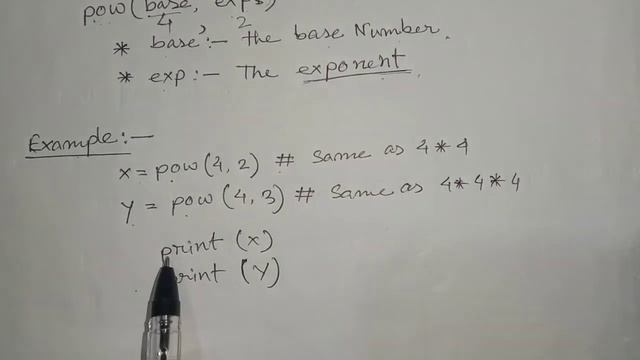 pow(base, exp)
4 2
* base :- the base Number.
* exp :- The exponent
Example:-
x = pow(4, 2) # Same as 4*4
y = pow(4, 3) # Same as 4*4*4
print (x)
print (y)